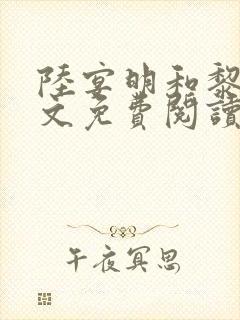 陸宴明和黎
文免費閱讀
午夜冥思